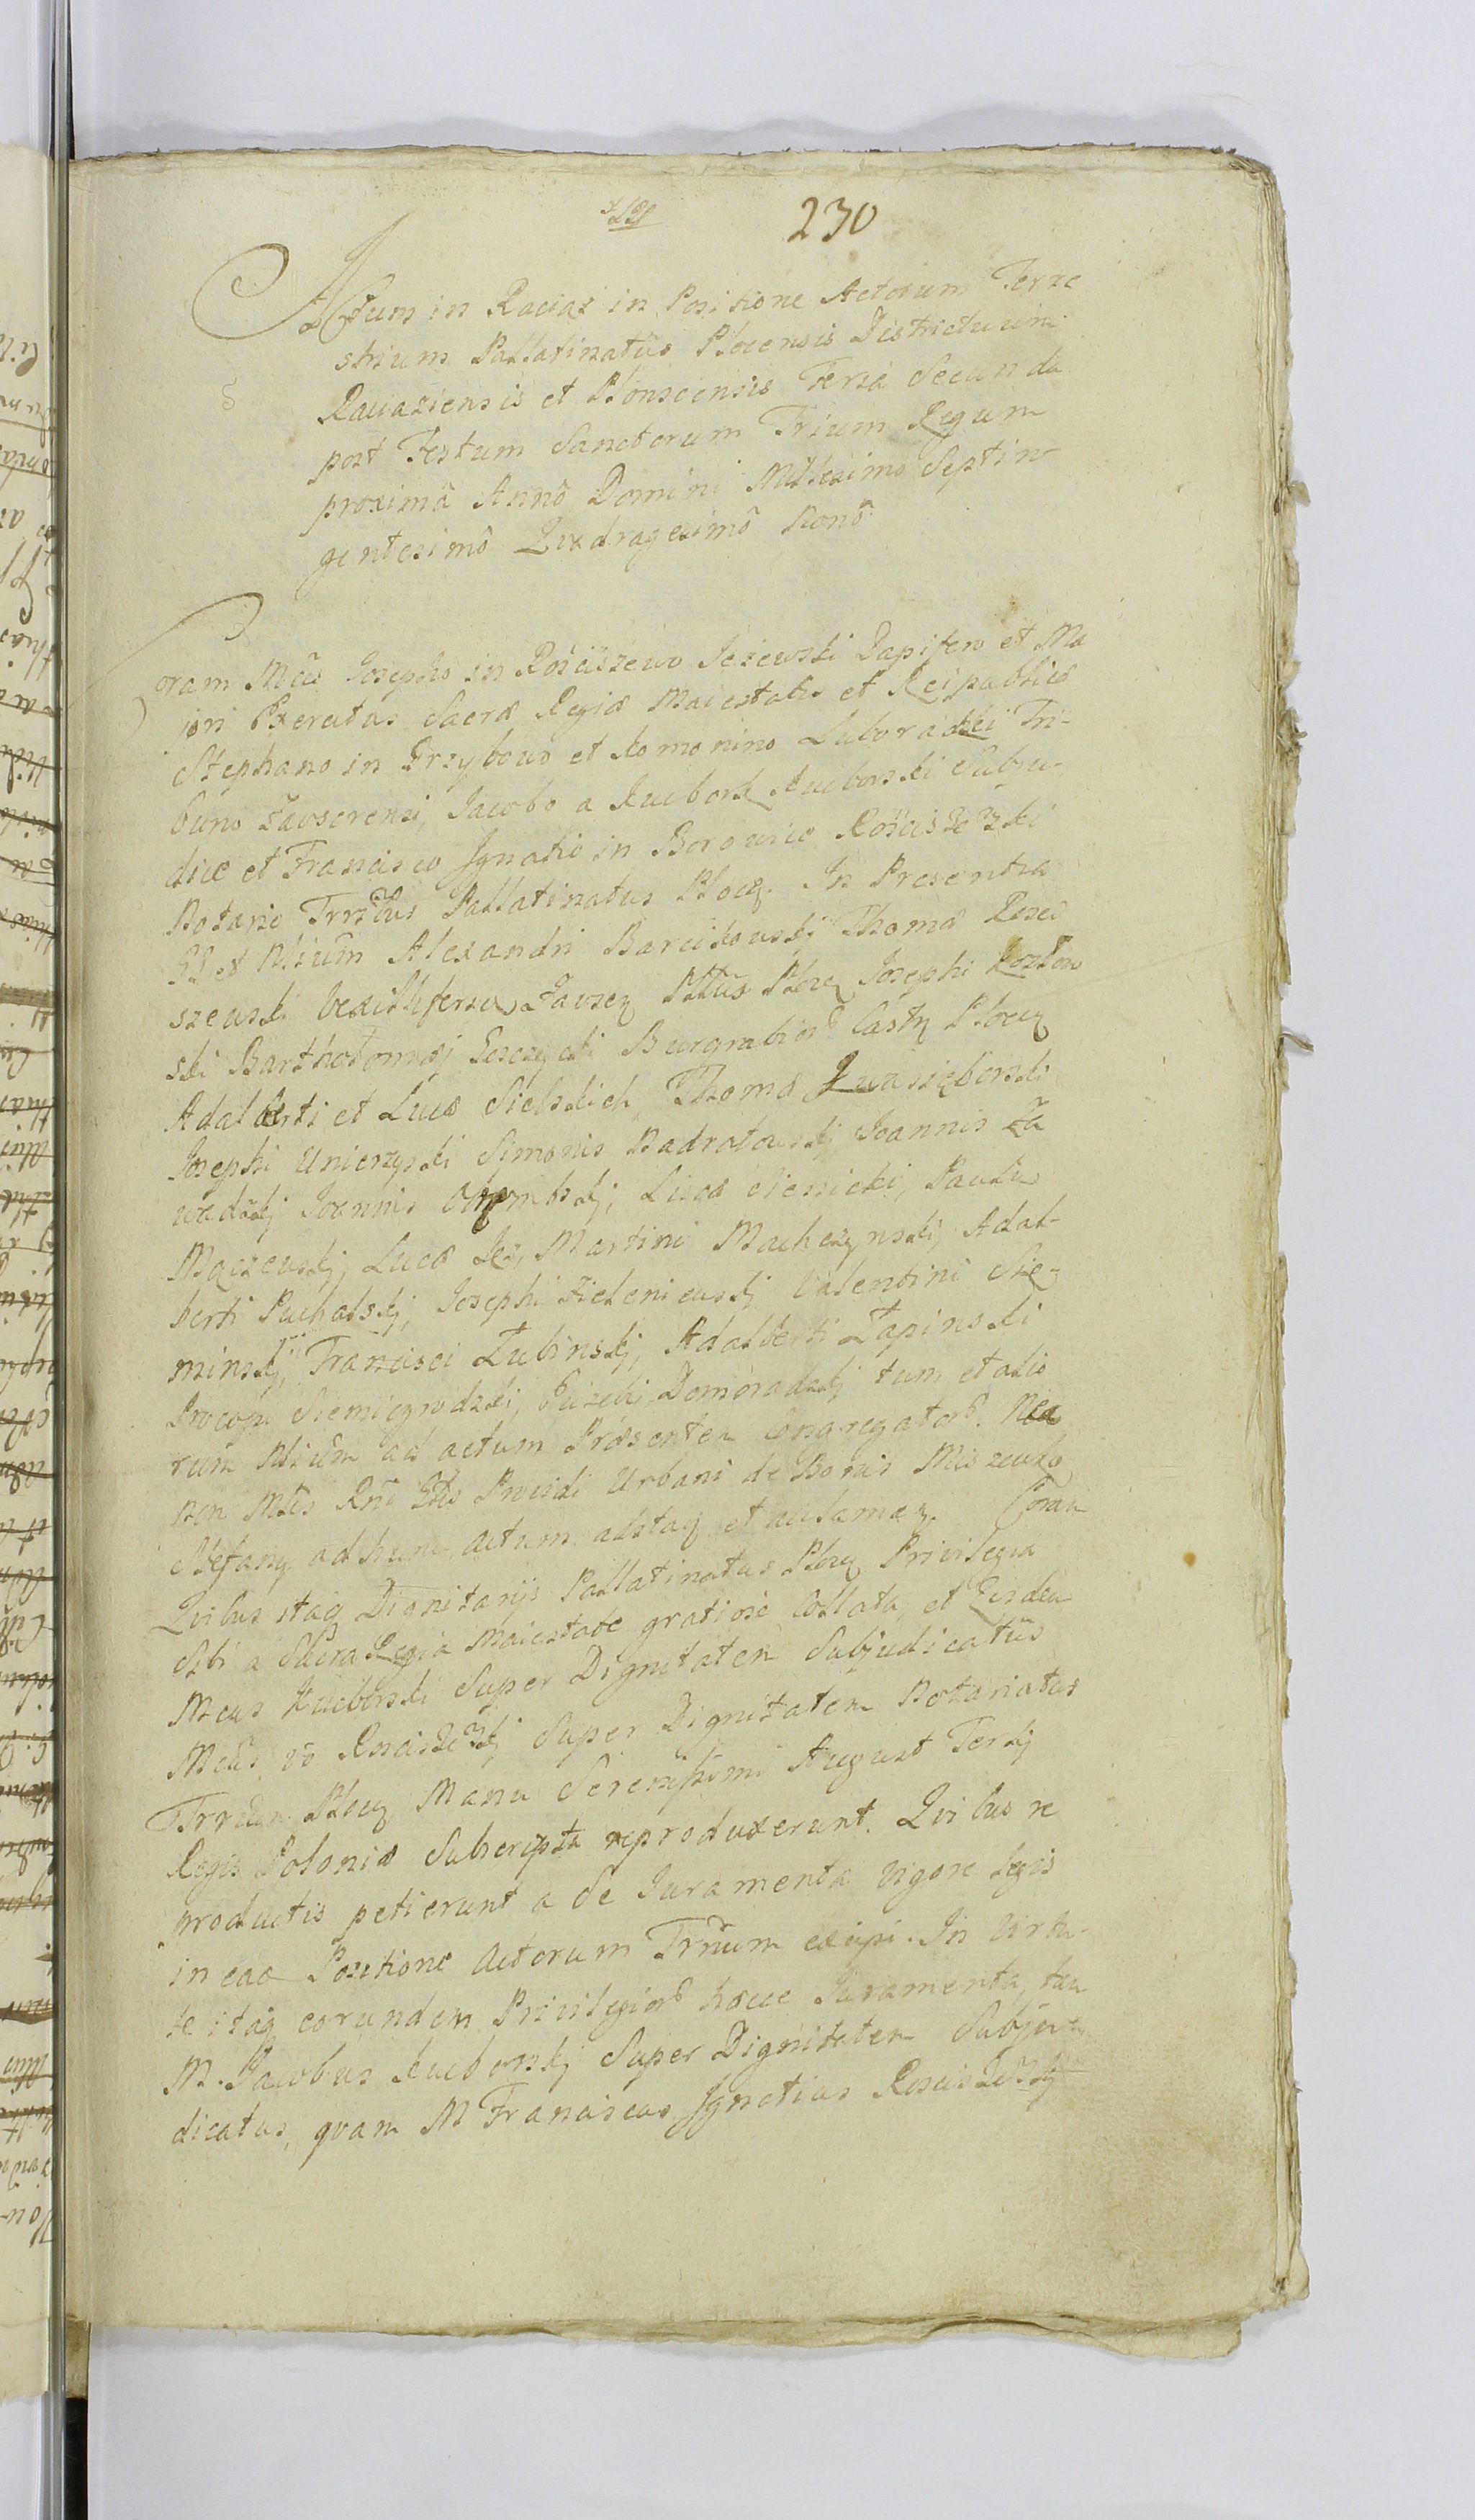 230
Actum in Raciąz in Positione Actorum Terre
strium Pallatinatûs Plocensis Districtuum
Raciaziensis et Plonscensis Feria Secunda
post Festum Sanctorum Trium Regum
proximâ Annô Domini Millesimo Septin-
gentesimô Quadragesimô Nonô
Coram Mcis Josepho in Rościszewo Jeżewski Dapifero et Ma
iori Exercitus Sacræ Regiæ Maiestatis et Reipublicæ
Stephano in Przybowo et Romonino Luboradzki Tri-
buno Zavscrensi, Jacobo a Kucbork Kucborski Subju-
dice et Francisco Ignatio in Borowice Rościszewski
Notario Trrstus Pallatinatus Plocen. In Presentia
GG et Nlium Alexandri Barcikowskj Thomæ Rości
szewski Vexilliferor Zavscren Pltûs Plocen Josephi Kozłow
ski Bartholomæj Jeszczycki Burgrabior Castren Plocen
Adalberti et Lucæ Sielskich, Thomæ Kwasięborski
Josephi Unierzyski Simonis Nadratowskj Joannis Za
wadzkj Joannis Chrombskj, Lucæ Sienicki, Pauli
Mączewskj, Lucæ Jeż, Martini Machczynskj, Adal-
berti Puchalskj, Josephi Zieleniewskj Valentini Sle-
minskj, Francisci Łubinskj, Adalberti Łapinski
Procopi Siemiegrodzki, Domoradzkj tum et alio
rum Nlium ad actum Præsentem Congregator. Nec
non Mtis Rni Gtis Providi Urbani de Bonis Miszewko
Stefany ad hunc actum alstan et acclaman. Coram
Quibus itaq Dignitarijs Pallatinatus Plocen Privilegia
Sibi a Sacra Regia Maiestate gratiose Collata, et Eisdem
Mcus Kucborski Super Dignitatem Subjudicatûs
Mcus vo Rościszewskj Super Dignitatem Notariatus
Trrium Plocen Manu Serenissimi August Tertij
Regis Poloniæ Subscripta reproduxerunt. Quibus re
productis petierunt a Se Juramenta vigore legis
in eaa Positione Actorum Trrium excipi. In Virtu-
te itaq eorundem Privilegior hocce Juramenta, tam
M. Jacobus Kucborskj Super Dignitatem Subju-
dicatus, qvam M Franciscus Ignatius Rościszewskj